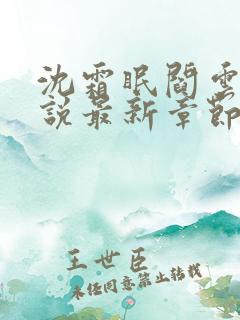 沈霜眠閻雲
說最新章節
王世臣
未经同意禁止转载